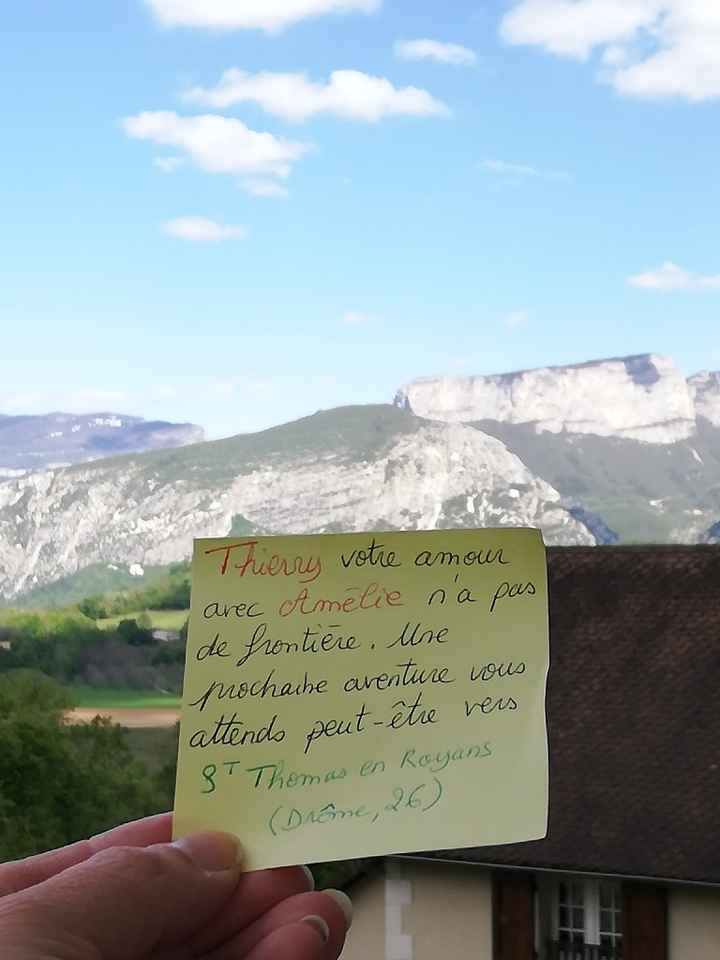 Thierry votre amour
avec Amélie n'a pas
de frontière. Une
prochaine aventure vous
attends peut-être vers
St Thomas en Royans
(Drôme, 26)